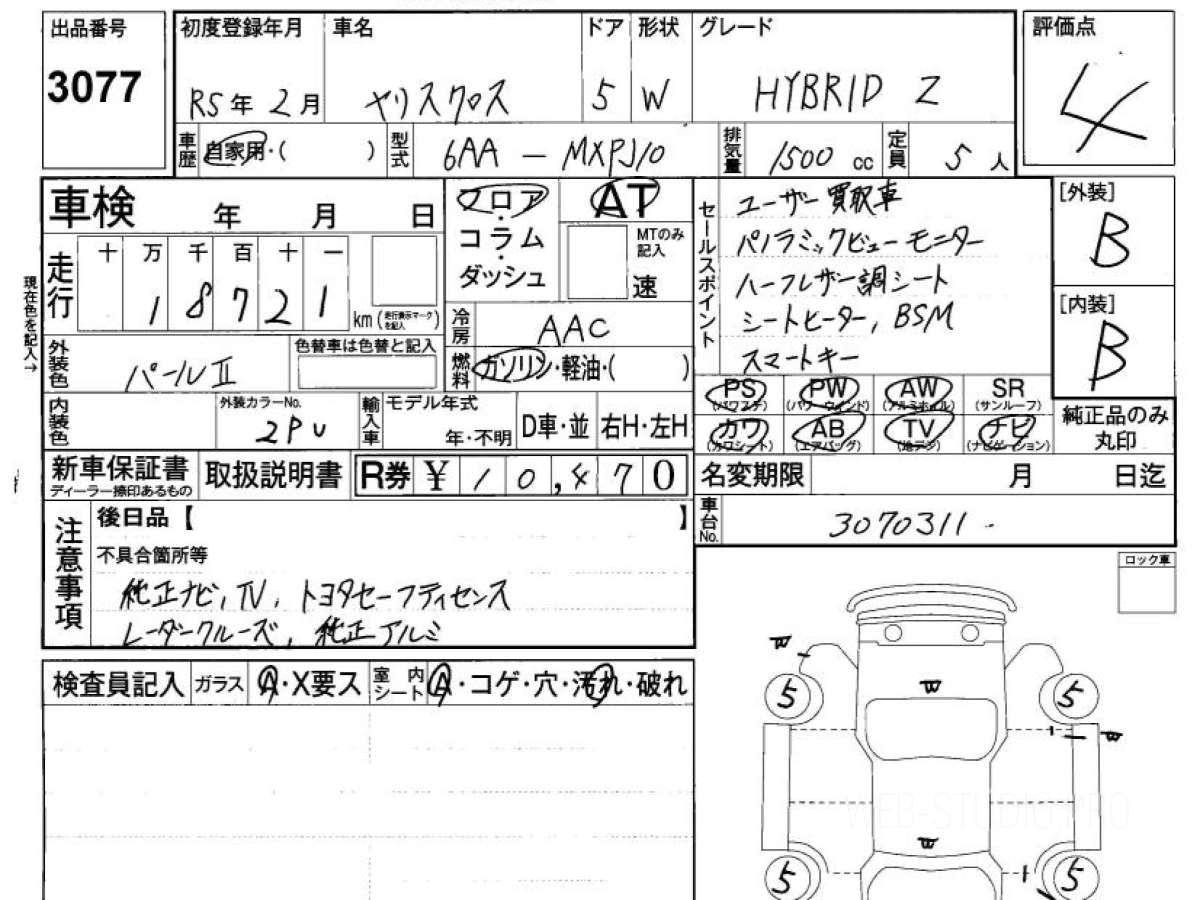 出品番号
3077
初度登録年月
R5年 2月
車名
ヤリスクロス
ドア
5
形状
W
グレード
HYBRID Z
評価点
4
車歴
自家用・( )
型式
6AA - MXPJ10
排気量
1500 cc
定員
5 人
車検 年 月 日
現在色を記入→
走行
十 万 千 百 十 一
1 8 7 2 1
km (走行表示マークを記入)
外装色
パールⅡ
色替車は色替と記入
内装色
外装カラーNo.
2PU
輸入車
モデル年式
年・不明
D車・並
右H・左H
フロア
・
コラム
・
ダッシュ
AT
MTのみ
記入
速
冷房
AAC
燃料
ガソリン・軽油・( )
セールスポイント
ユーザー買取車
パノラミックビューモニター
ハーフレザー調シート
シートヒーター, BSM
スマートキー
[外装]
B
[内装]
B
PS
(パワステ)
PW
(パワーウインド)
AW
(アルミホイル)
SR
(サンルーフ)
カワ
(カワシート)
AB
(エアバッグ)
TV
(地デジ)
ナビ
(ナビゲーション)
純正品のみ
丸印
新車保証書
ディーラー捺印あるもの
取扱説明書
R券 ¥ 10,470
名変期限 月 日迄
車台No.
3070311
注意事項
後日品【 】
不具合箇所等
純正ナビ, TV, トヨタセーフティセンス
レーダークルーズ, 純正アルミ
ロック車
検査員記入
ガラス
A・X要ス
室内シート
A・コゲ・穴・汚れ・破れ
W
W
5
5
W
WEB-STUDIO.PRO
W
5
5